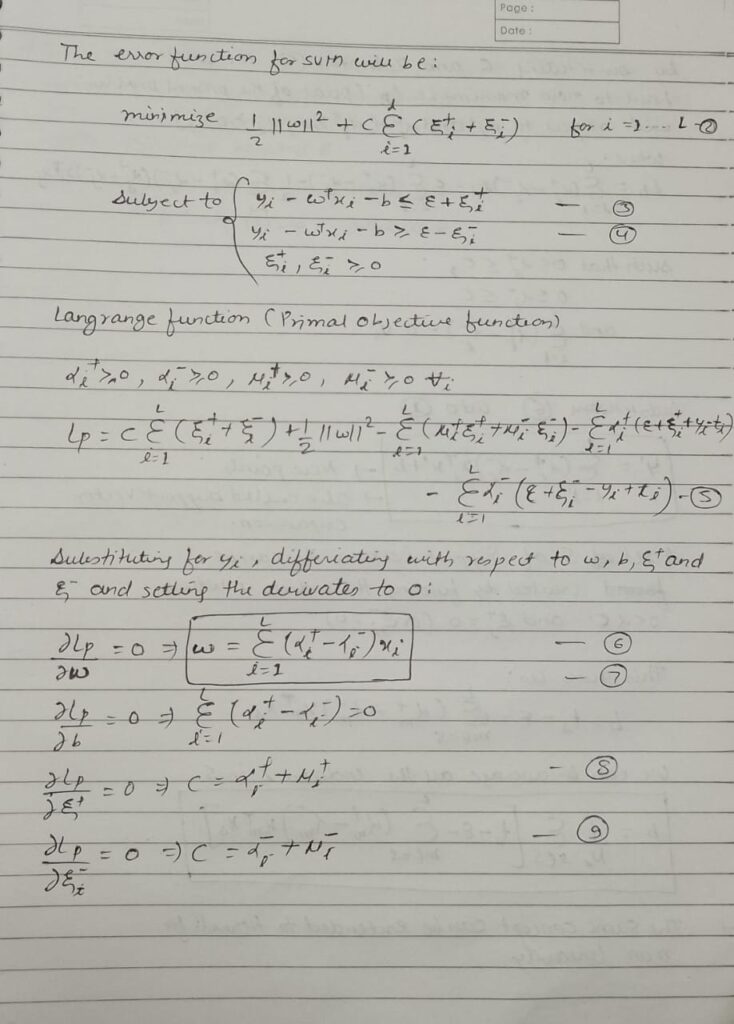 Page :
Date :
The error function for SVM will be :
minimize 1/2 ||ω||² + C Σ_{i=1}^{L} (ξ_i^+ + ξ_i^-) for i = 1 .... L - ②
Subject to { y_i - ω^T x_i - b ≤ ε + ξ_i^+ — ③
y_i - ω^T x_i - b ≥ ε - ξ_i^- — ④
ξ_i^+ , ξ_i^- ≥ 0
Langrange function (Primal objective function)
α_i^+ ≥ 0 , α_i^- ≥ 0 , μ_i^+ ≥ 0 , μ_i^- ≥ 0 ∀_i
Lp = C Σ_{i=1}^{L} (ξ_i^+ + ξ_i^-) + 1/2 ||ω||² - Σ_{i=1}^{L} (μ_i^+ ξ_i^+ + μ_i^- ξ_i^-) - Σ_{i=1}^{L} α_i^+ (ε + ξ_i^+ + y_i - t_i)
- Σ_{i=1}^{L} α_i^- (ε + ξ_i^- - y_i + t_i) - ⑤
Substituting for y_i , differiating with respect to ω, b, ξ^+ and
ξ^- and setting the derivates to 0 :
∂Lp/∂ω = 0 ⇒ ω = Σ_{i=1}^{L} (α_i^+ - α_i^-) x_i — ⑥
— ⑦
∂Lp/∂b = 0 ⇒ Σ_{i=1}^{L} (α_i^+ - α_i^-) = 0
∂Lp/∂ξ^+ = 0 ⇒ C = α_i^+ + μ_i^+ — ⑧
∂Lp/∂ξ_i^- = 0 ⇒ C = α_i^- + μ_i^- — ⑨